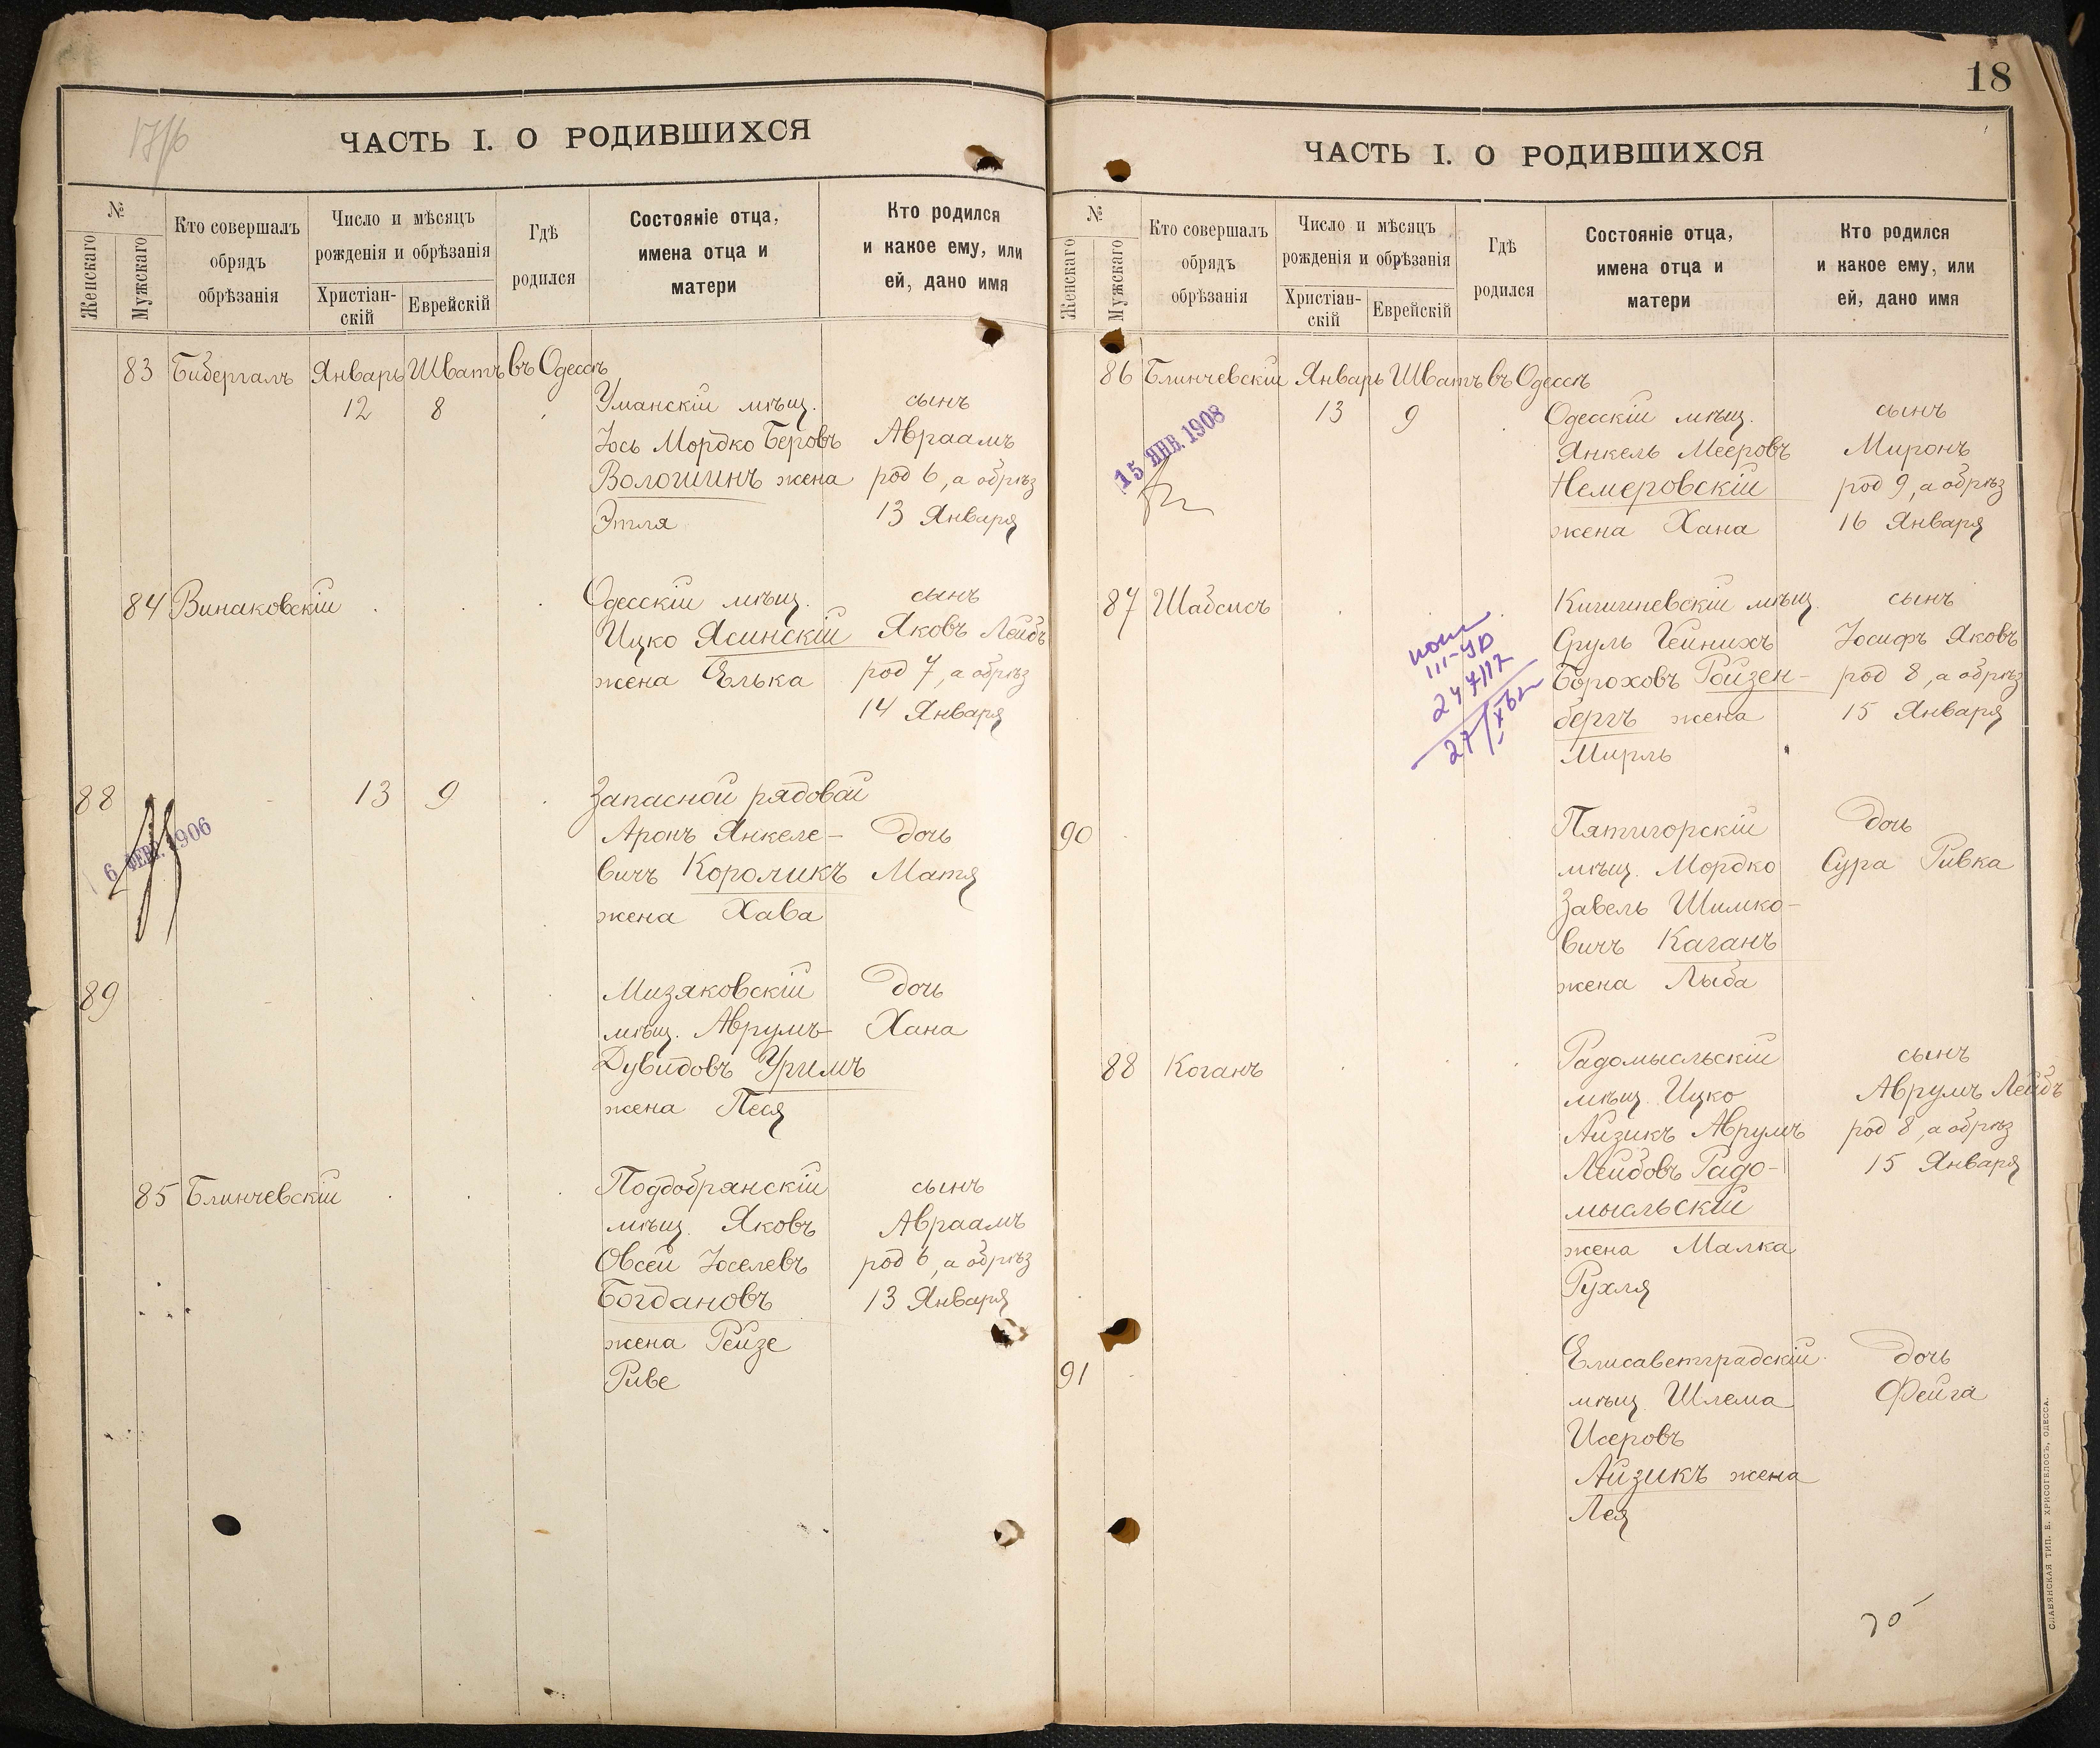 18
ЧАСТЬ I. О РОДИВШИХСЯ
№
Женскаго
Мужскаго
Кто совершалъ
обрядъ
обрѣзанія
Число и мѣсяцъ
рожденія и обрѣзанія
Христіан-
скій
Еврейскій
Гдѣ
родился
Состояніе отца,
имена отца и
матери
Кто родился
и какое ему, или
ей, дано имя
83 Бибергалъ Январь Шватъ въ Одессѣ
12 8 Уманскій мѣщ. сынъ
Іось Мордко Беровъ Авраамъ
Волошинъ жена род 6, а обрѣз
Этля 13 Января
84 Винаковскій Одесскій мѣщ. сынъ
Ицко Ясинскій Яковъ Лейбъ
жена Елька род 7, а обрѣз
14 Января
88 13 9 Запасной рядовой
Аронъ Янкеле- дочь
вичъ Короликъ Матя
жена Хава
6 ФЕВ. 1906
89 Мизяковскій дочь
мѣщ. Аврумъ- Хана
Дувидовъ Уримъ
жена Песя
85 Блинчевскій Поддобрянскій сынъ
мѣщ. Яковъ Авраамъ
Овсей Іоселевъ род 6, а обрѣз
Богдановъ 13 Января
жена Рейзе
Риве
ЧАСТЬ I. О РОДИВШИХСЯ
№
Женскаго
Мужскаго
Кто совершалъ
обрядъ
обрѣзанія
Число и мѣсяцъ
рожденія и обрѣзанія
Христіан-
скій
Еврейскій
Гдѣ
родился
Состояніе отца,
имена отца и
матери
Кто родился
и какое ему, или
ей, дано имя
86 Блинчевскій Январь Шватъ въ Одессѣ
13 9 Одесскій мѣщ. сынъ
Янкель Мееровъ Миронъ
Немеровскій род 9, а обрѣз
жена Хана 16 Января
15 ЯНВ. 1908
87 Шабсисъ Кишиневскій мѣщ. сынъ
Сруль Гейнихъ Іосифъ Яковъ
Бороховъ Ройзен- род 8, а обрѣз
бергъ жена 15 Января
Мирль
90 Пятигорскій дочь
мѣщ. Мордко Сура Ривка
Завель Шимко-
вичъ Каганъ
жена Лыба
88 Коганъ Радомысльскій сынъ
мѣщ. Ицко Аврумъ Лейбъ
Айзикъ Аврумъ род 8, а обрѣз
Лейбовъ Радо- 15 Января
мысльскій
жена Малка
Рухля
91 Елисаветградскій дочь
мѣщ. Шлема Фейга
Исеровъ
Айзикъ жена
Лея
СЛАВЯНСКАЯ ТИП. Е. ХРИСОГЕЛОСЪ, ОДЕССА.